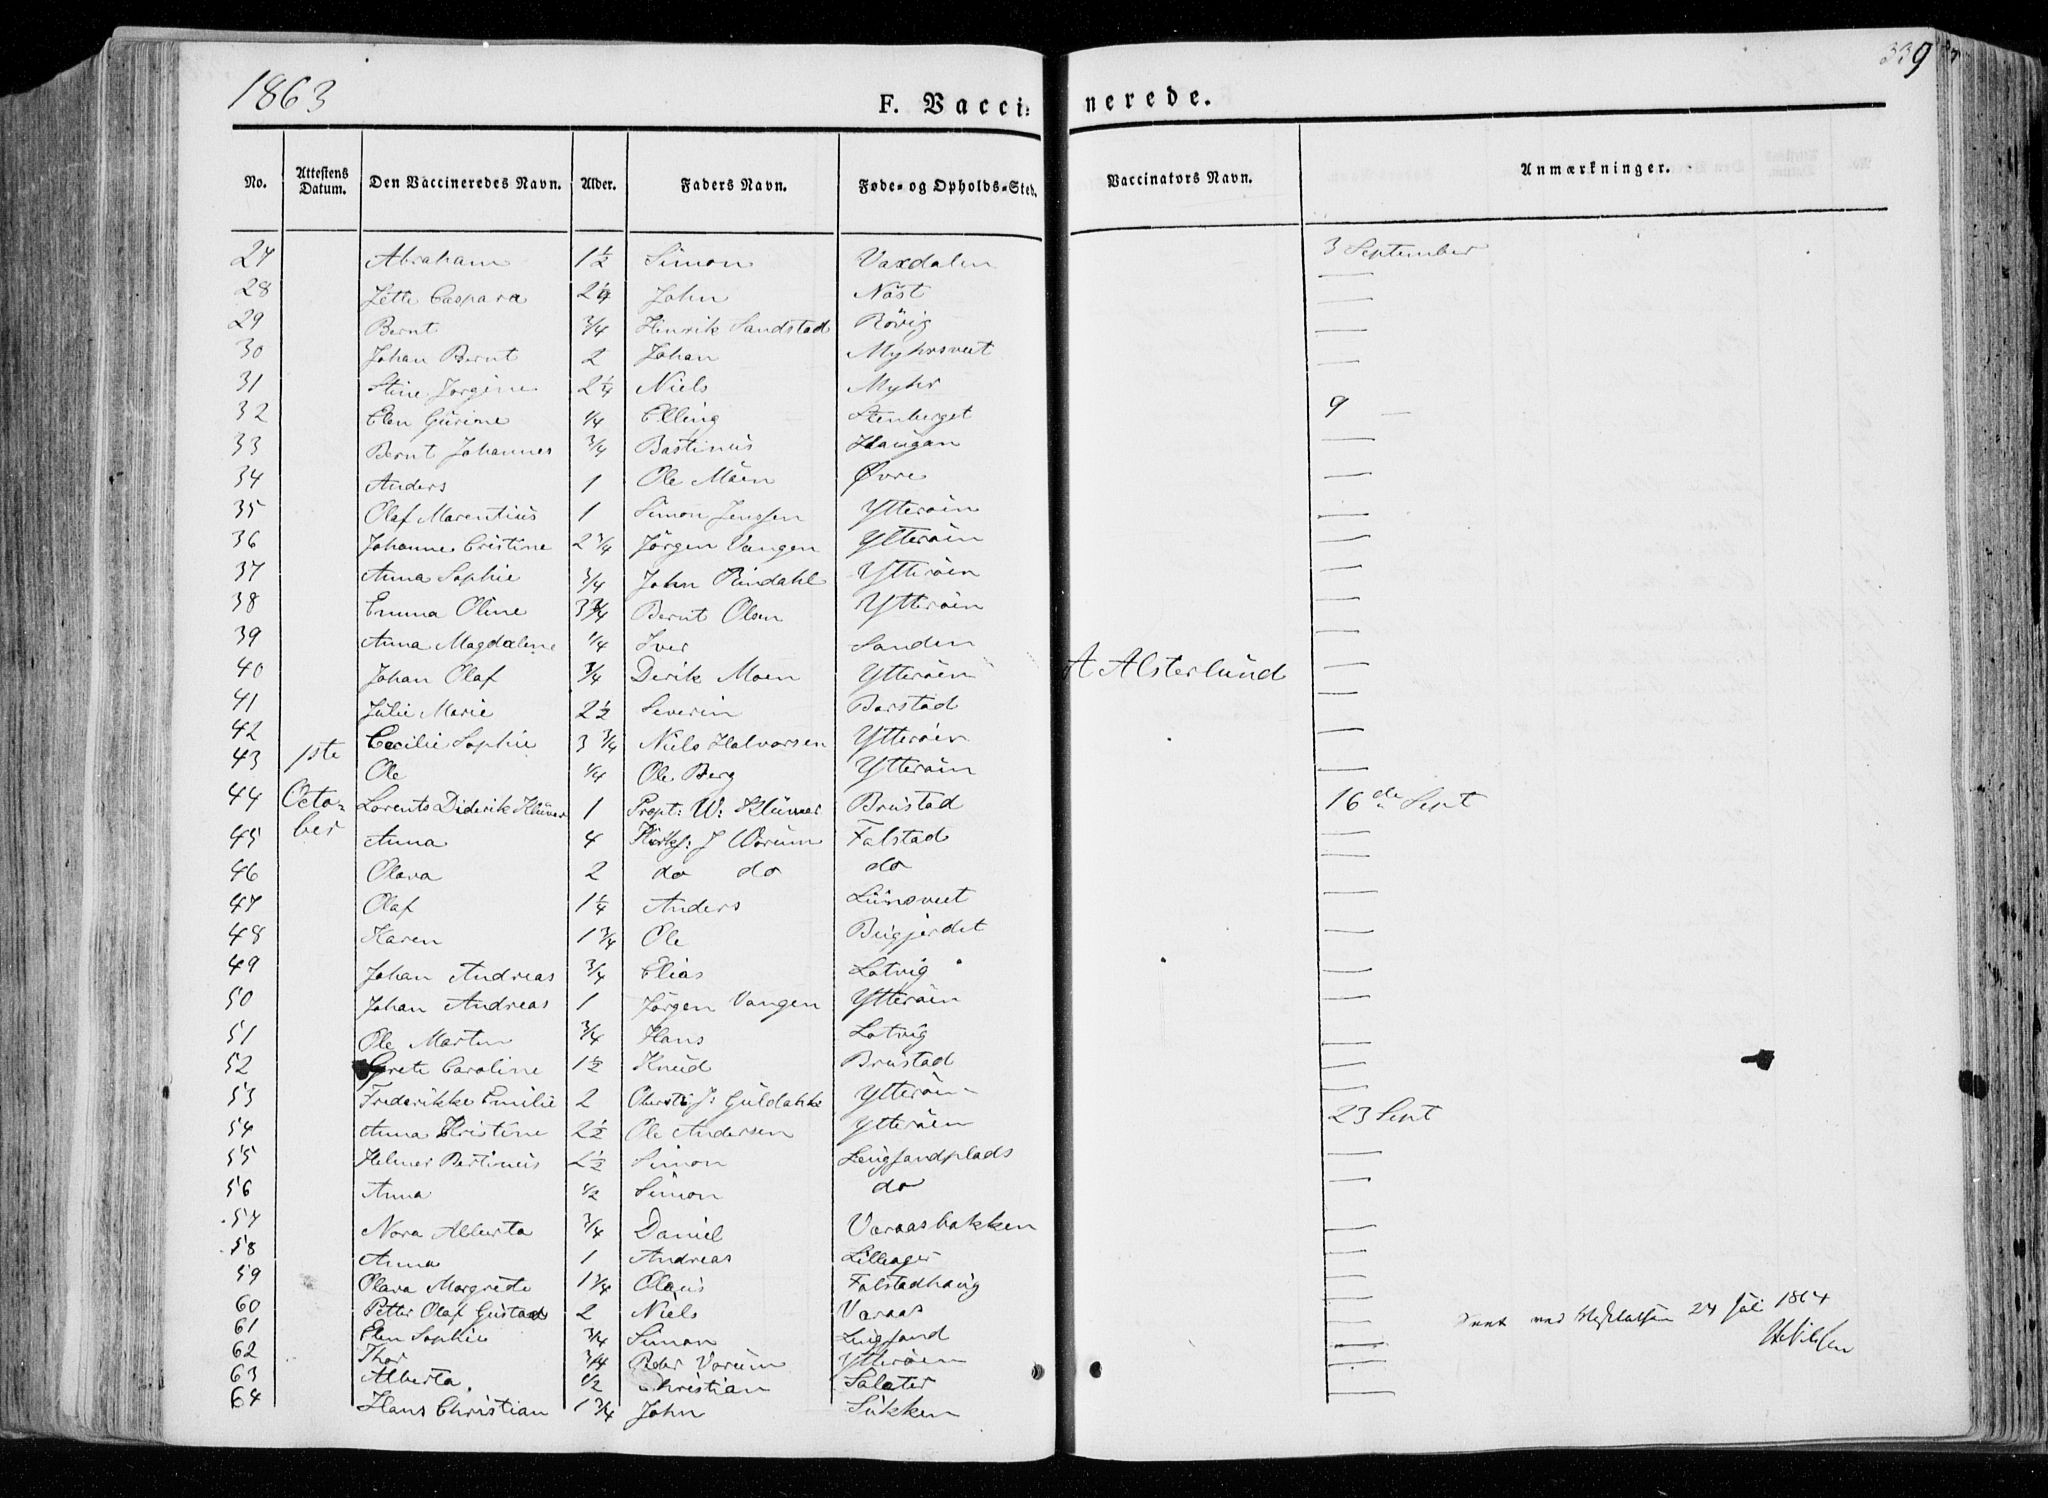 1863
339
F. Vaccinerede.
No. Attestens Datum. Den Vaccineredes Navn. Alder. Faders Navn. Føde- og Opholds-Sted. Vaccinators Navn. Anmærkninger.
27 Abraham 1½ Simon Vaxdalen 3 September
28 Jette Caspara 2¼ John Näst —
29 Bernt ¾ Hinrik Sandstad Rövig —
30 Johan Bernt 2 Johan Myhrsveet —
31 Stine Jørgine 2¼ Niels Myhr —
32 Elen Gurine ¼ Elling Stenberget 9 —
33 Bernt Johannes ¾ Bastinus Haugan —
34 Anders 1 Ole Moen Øvre —
35 Olaf Marentius 1 Simon Jenssen Ytterøen —
36 Johanne Cristine 2¾ Jørgen Vangen Ytterøen —
37 Anna Sophie ¾ John Rindahl Ytterøen —
38 Emma Oline 3¾ Bernt Olsen Ytterøen —
39 Anna Magdalene ¼ Iver Sanden —
40 Johan Olaf ¾ Derik Moen Ytterøen A Alsterlund —
41 Julie Marie 2½ Severin Barstad —
42 Cecilie Sophie 3¾ Niels Halvorsen Ytterøen —
43 1ste Ole ¼ Ole Berg Ytterøen —
44 Octo- Lorents Diderik Klüwer 1 Propt: W: Klüwer Brustad 16de Sept
45 ber Anna 4 J Worum Falstad —
46 Olava 2 do do do —
47 Olaf 1¼ Anders Lünsveet —
48 Karen 1¾ Ole Bugjerdet —
49 Johan Andreas ¾ Elias Lotvig —
50 Johan Andreas 1 Jørgen Vangen Ytterøen —
51 Ole Martin ¾ Hans Lotvig —
52 Grete Caroline 1½ Knud Brustad —
53 Frederikke Emilie 2 J: Guldahke Ytterøen —
54 Anna Kristine 2½ Ole Andersen Ytterøen 23 Sept
55 Helmer Bertinus 2½ Simon Lengsandplads —
56 Anna ½ Simon do —
57 Nora Alberta ¾ Daniel Varaasbakken —
58 Anna 1 Andreas Lilleager —
59 Olava Margrete 1¼ Olaus Falstadhaug —
60 Petter Olaf Gustav 2 Niels Varaas —
61 Elen Sophie ¾ Simon Lengsand —
62 Thor ¾ Peder Vorum Ytterøen —
63 Alberta ½ Christian Salater —
64 Hans Christian 1¾ John Sukken —
24 Juli 1864